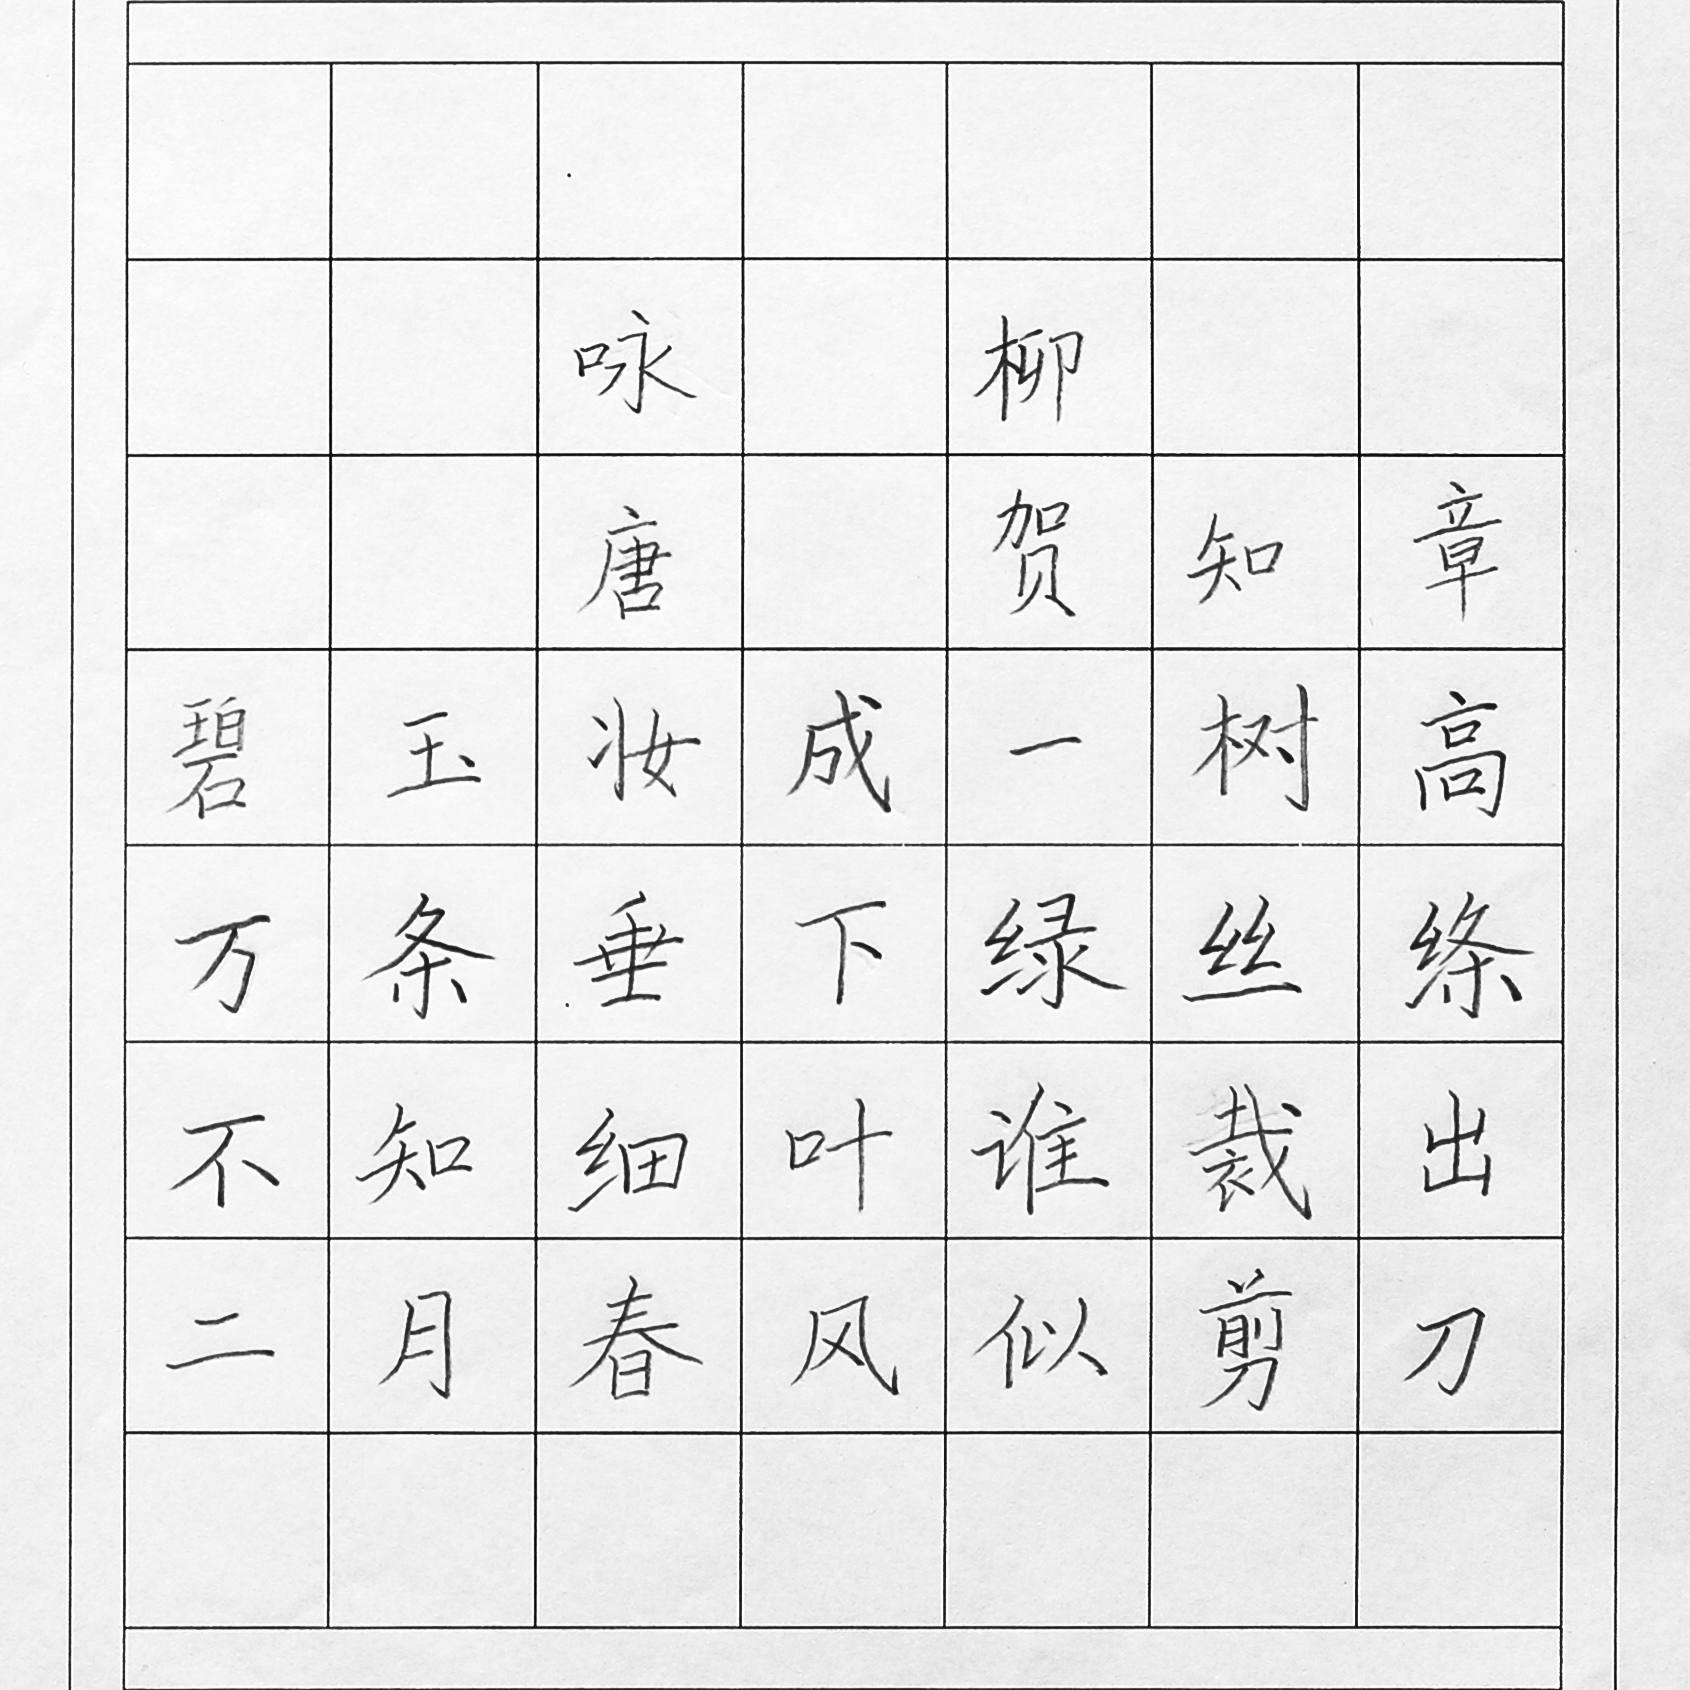 咏 柳
唐 贺知章
碧玉妆成一树高
万条垂下绿丝绦
不知细叶谁裁出
二月春风似剪刀